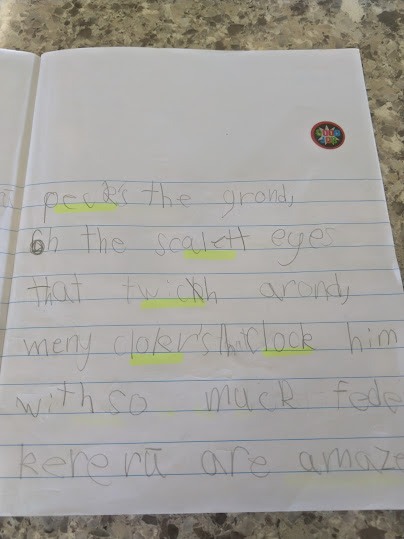 pecks the grond,
Oh the scalett eyes
that twichh arond,
meny cloker's clock him
with so muck fede
kererū are amaze